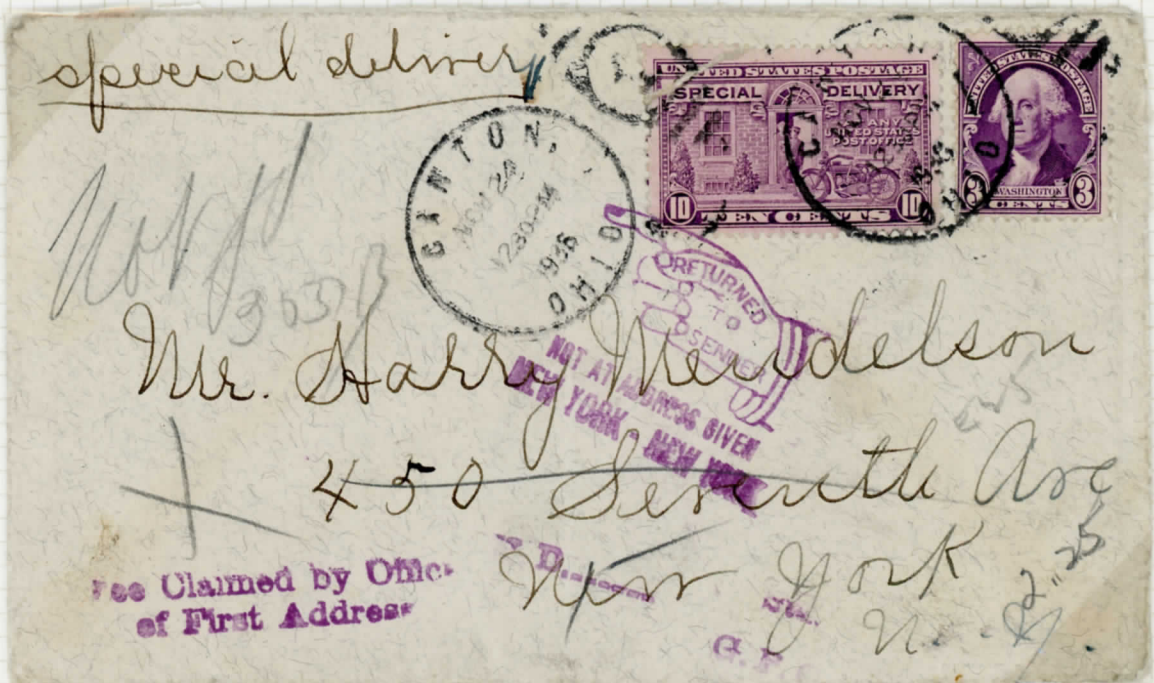 special delivery
UNITED STATES POSTAGE
SPECIAL DELIVERY
ANY
UNITED STATES
POST OFFICE
10 TEN CENTS 10
UNITED STATES POSTAGE
WASHINGTON
3 CENTS 3
CANTON, OHIO
NOV 24
12:30 PM
1936
303
RETURNED
TO
SENDER
NOT AT ADDRESS GIVEN
NEW YORK - NEW YORK
Mr. Harry Mendelson
450 Seventh Ave
New York
N. Y.
2"25
Fee Claimed by Office
of First Address